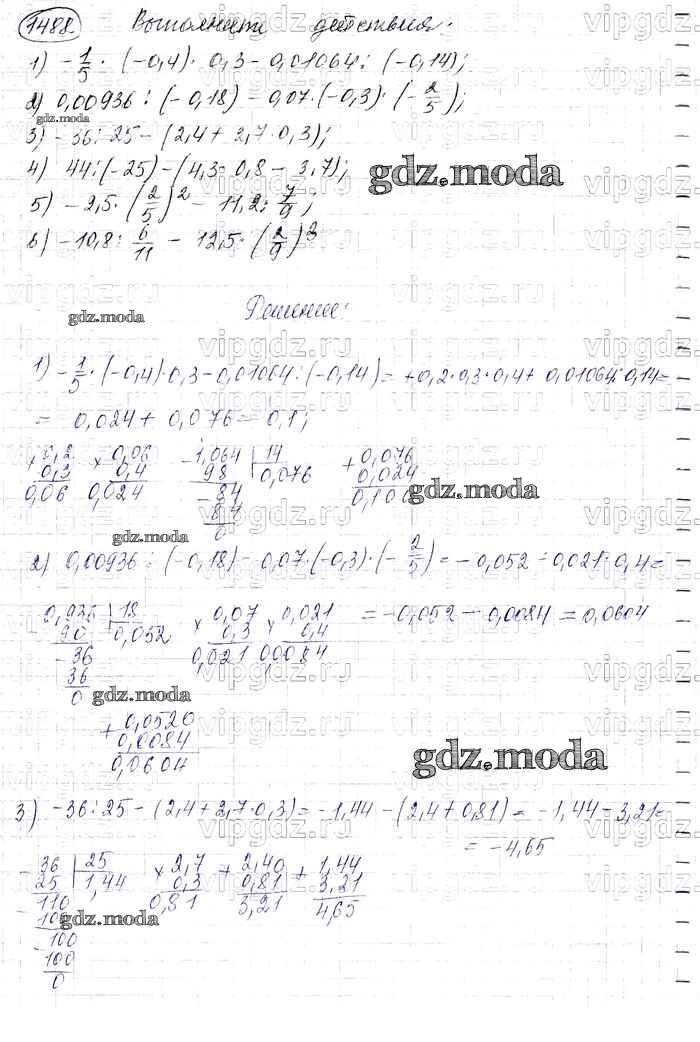 1488. Выполнить действия:
1) -1/5 · (-0,4) · 0,3 - 0,01064 : (-0,14);
2) 0,00936 : (-0,18) - 0,07 · (-0,3) · (-2/5);
3) -36 : 25 - (2,4 + 2,7 · 0,3);
4) 44 : (-25) - (4,3 · 0,8 - 3,7);
gdz.moda
5) -2,5 · (2/5)² - 11,2 : 7/9;
6) -10,8 : 6/11 - 12,5 · (2/9)³
Решение:
gdz.moda
1) -1/5 · (-0,4) · 0,3 - 0,01064 : (-0,14) = +0,2 · 0,3 · 0,4 + 0,01064 : 0,14 =
= 0,024 + 0,076 = 0,1;
× 0,2 × 0,06 - 1,064 | 14 + 0,076
0,3 0,4 98 0,076 0,024
0,06 0,024 - 84 0,100
84
0
gdz.moda
gdz.moda
2) 0,00936 : (-0,18) - 0,07 · (-0,3) · (-2/5) = -0,052 - 0,021 · 0,4 =
= -0,052 - 0,0084 = 0,0604
0,936 | 18 × 0,07 × 0,021
90 0,052 0,3 0,4
- 36 0,021 0,0084
36
0
gdz.moda
+ 0,0520
0,0084
0,0604
gdz.moda
3) -36 : 25 - (2,4 + 2,7 · 0,3) = -1,44 - (2,4 + 0,81) = -1,44 - 3,21 =
= -4,65
- 36 | 25 × 2,7 + 2,40 + 1,44
25 1,44 0,3 0,81 3,21
110 0,81 3,21 4,65
- 100
gdz.moda
- 100
100
0
vipgdz.ru